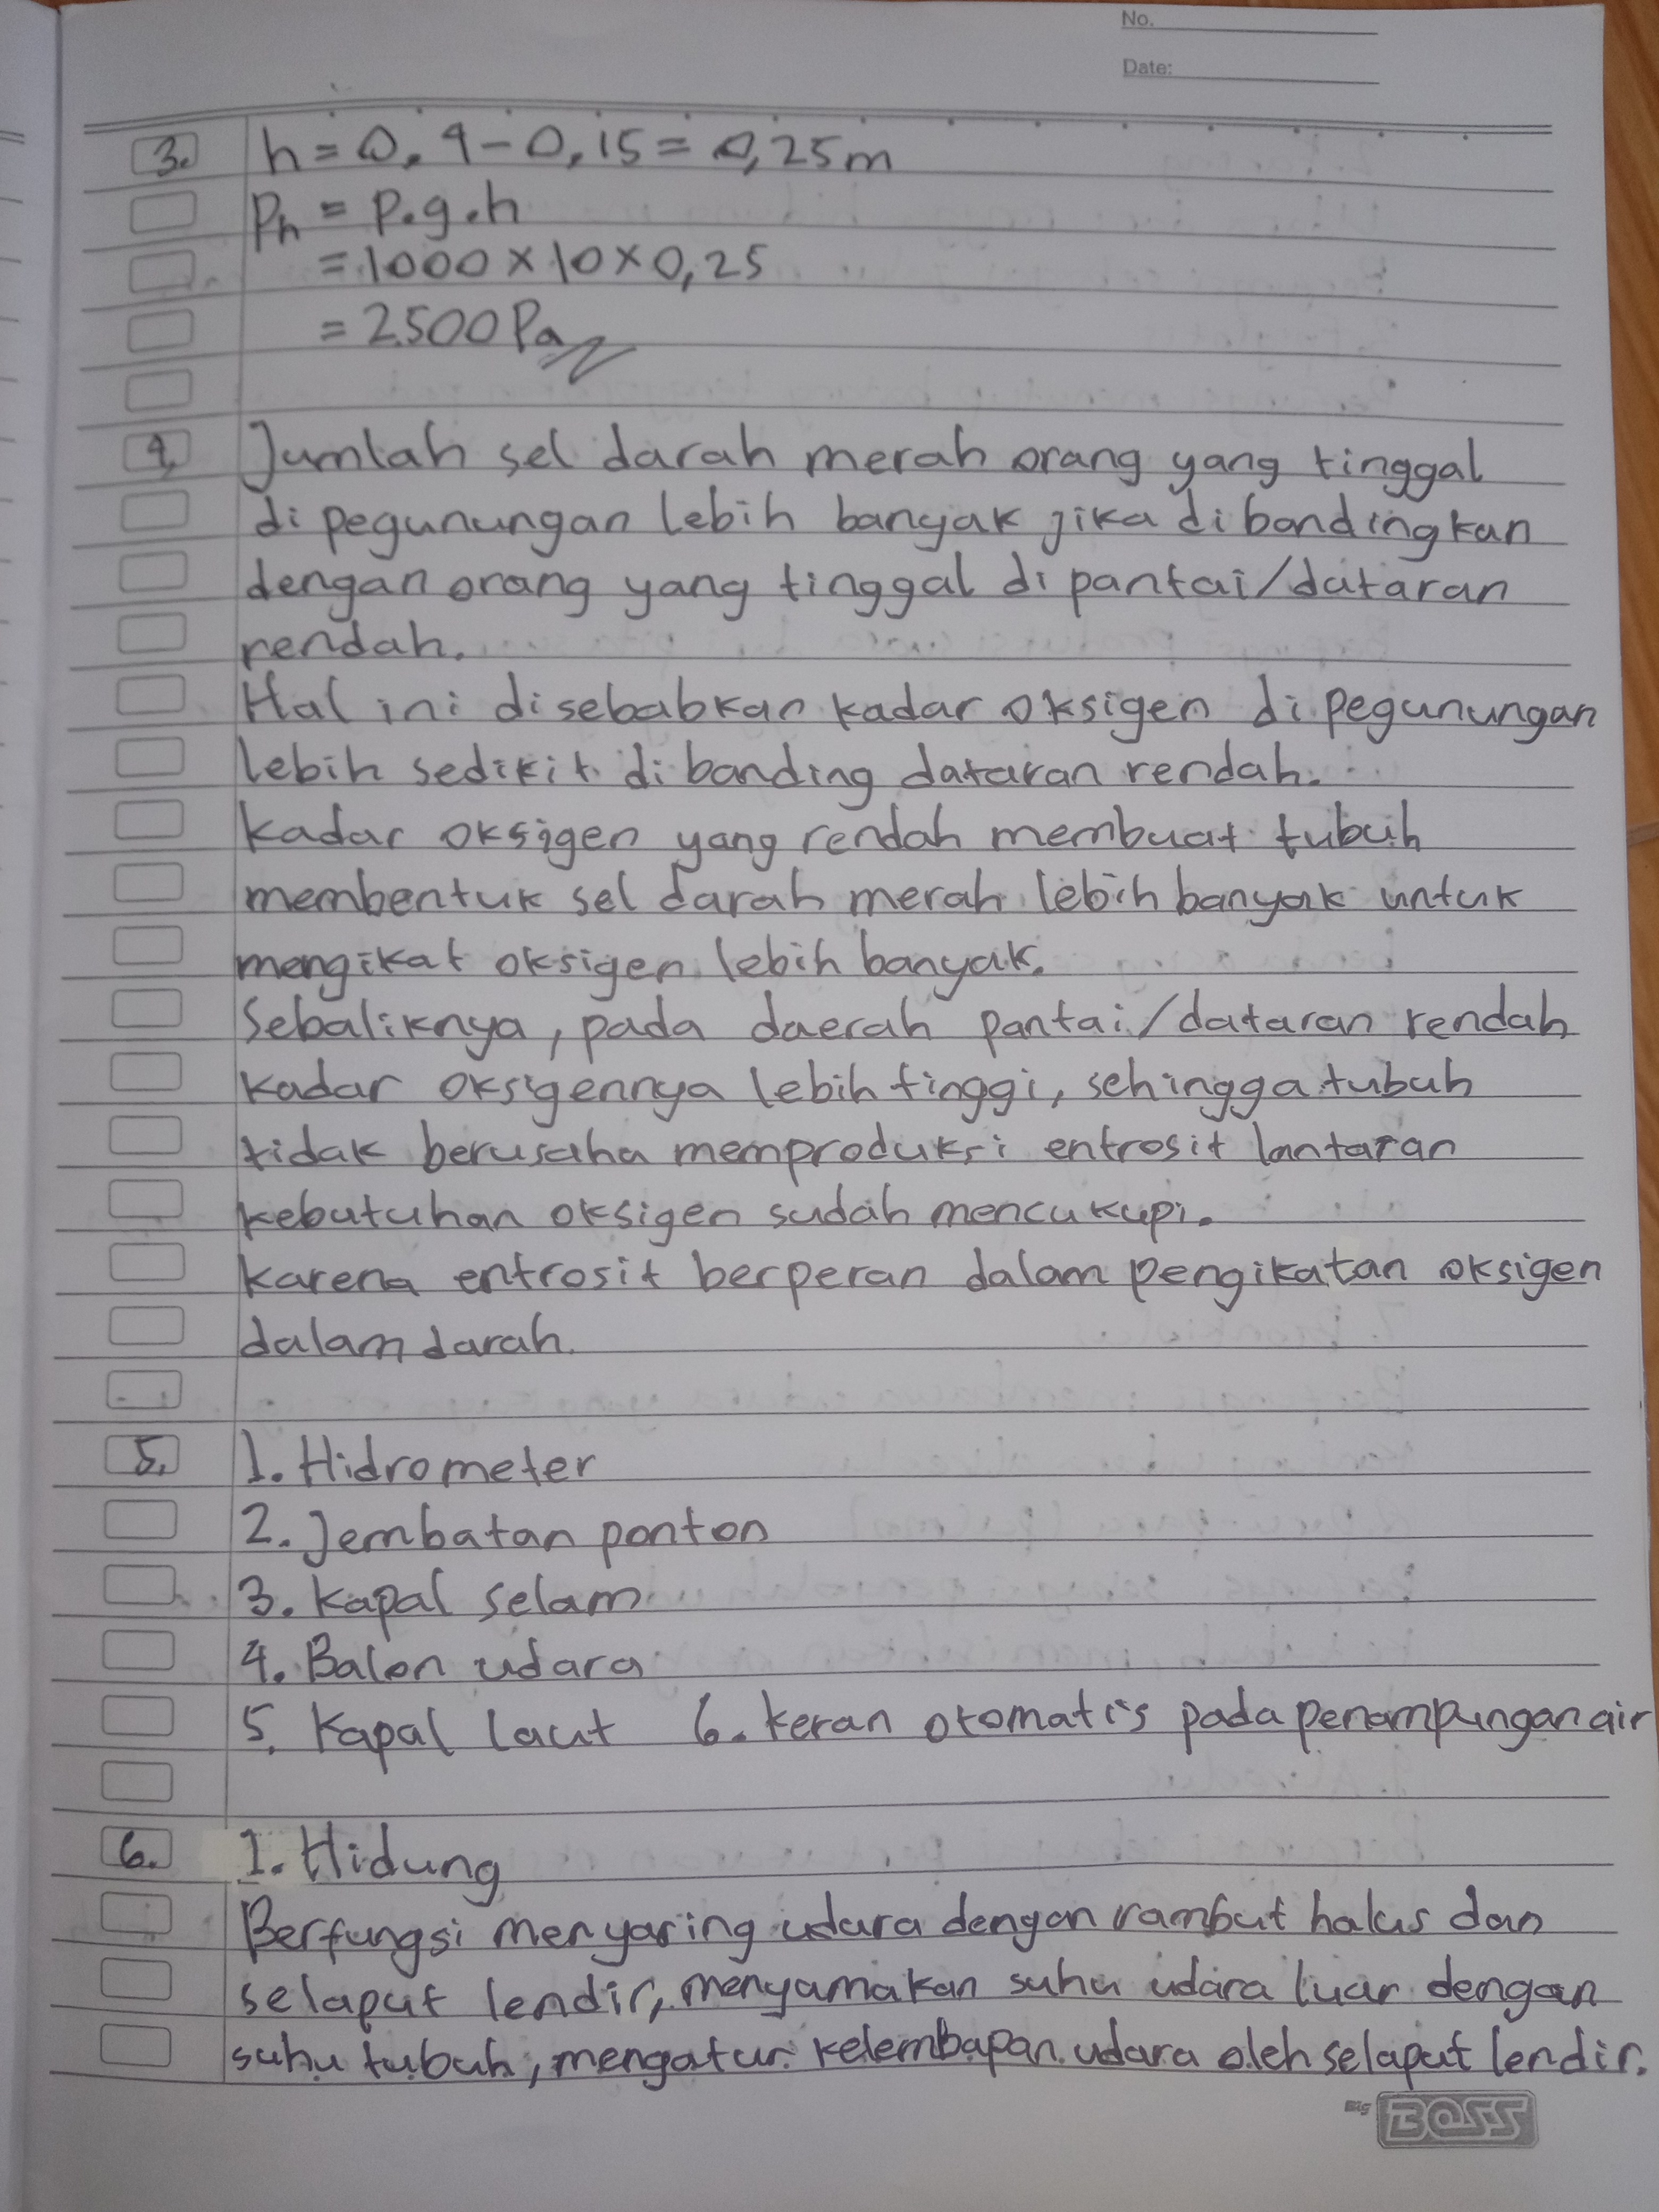 No.
Date:
3. h = 0,4 - 0,15 = 0,25 m
Ph = p.g.h
= 1000 × 10 × 0,25
= 2500 Pa
4. Jumlah sel darah merah orang yang tinggal
di pegunungan lebih banyak jika dibandingkan
dengan orang yang tinggal di pantai/dataran
rendah.
Hal ini disebabkan kadar oksigen di pegunungan
lebih sedikit dibanding dataran rendah.
Kadar oksigen yang rendah membuat tubuh
membentuk sel darah merah lebih banyak untuk
mengikat oksigen lebih banyak.
Sebaliknya, pada daerah pantai/dataran rendah
kadar oksigennya lebih tinggi, sehingga tubuh
tidak berusaha memproduksi entrosit lantaran
kebutuhan oksigen sudah mencukupi.
Karena entrosit berperan dalam pengikatan oksigen
dalam darah.
5. 1. Hidrometer
2. Jembatan ponton
3. Kapal selam
4. Balon udara
5. Kapal laut 6. Keran otomatis pada penampungan air
6. 1. Hidung
Berfungsi menyaring udara dengan rambut halus dan
selaput lendir, menyamakan suhu udara luar dengan
suhu tubuh, mengatur kelembapan udara oleh selaput lendir.
Big BOSS